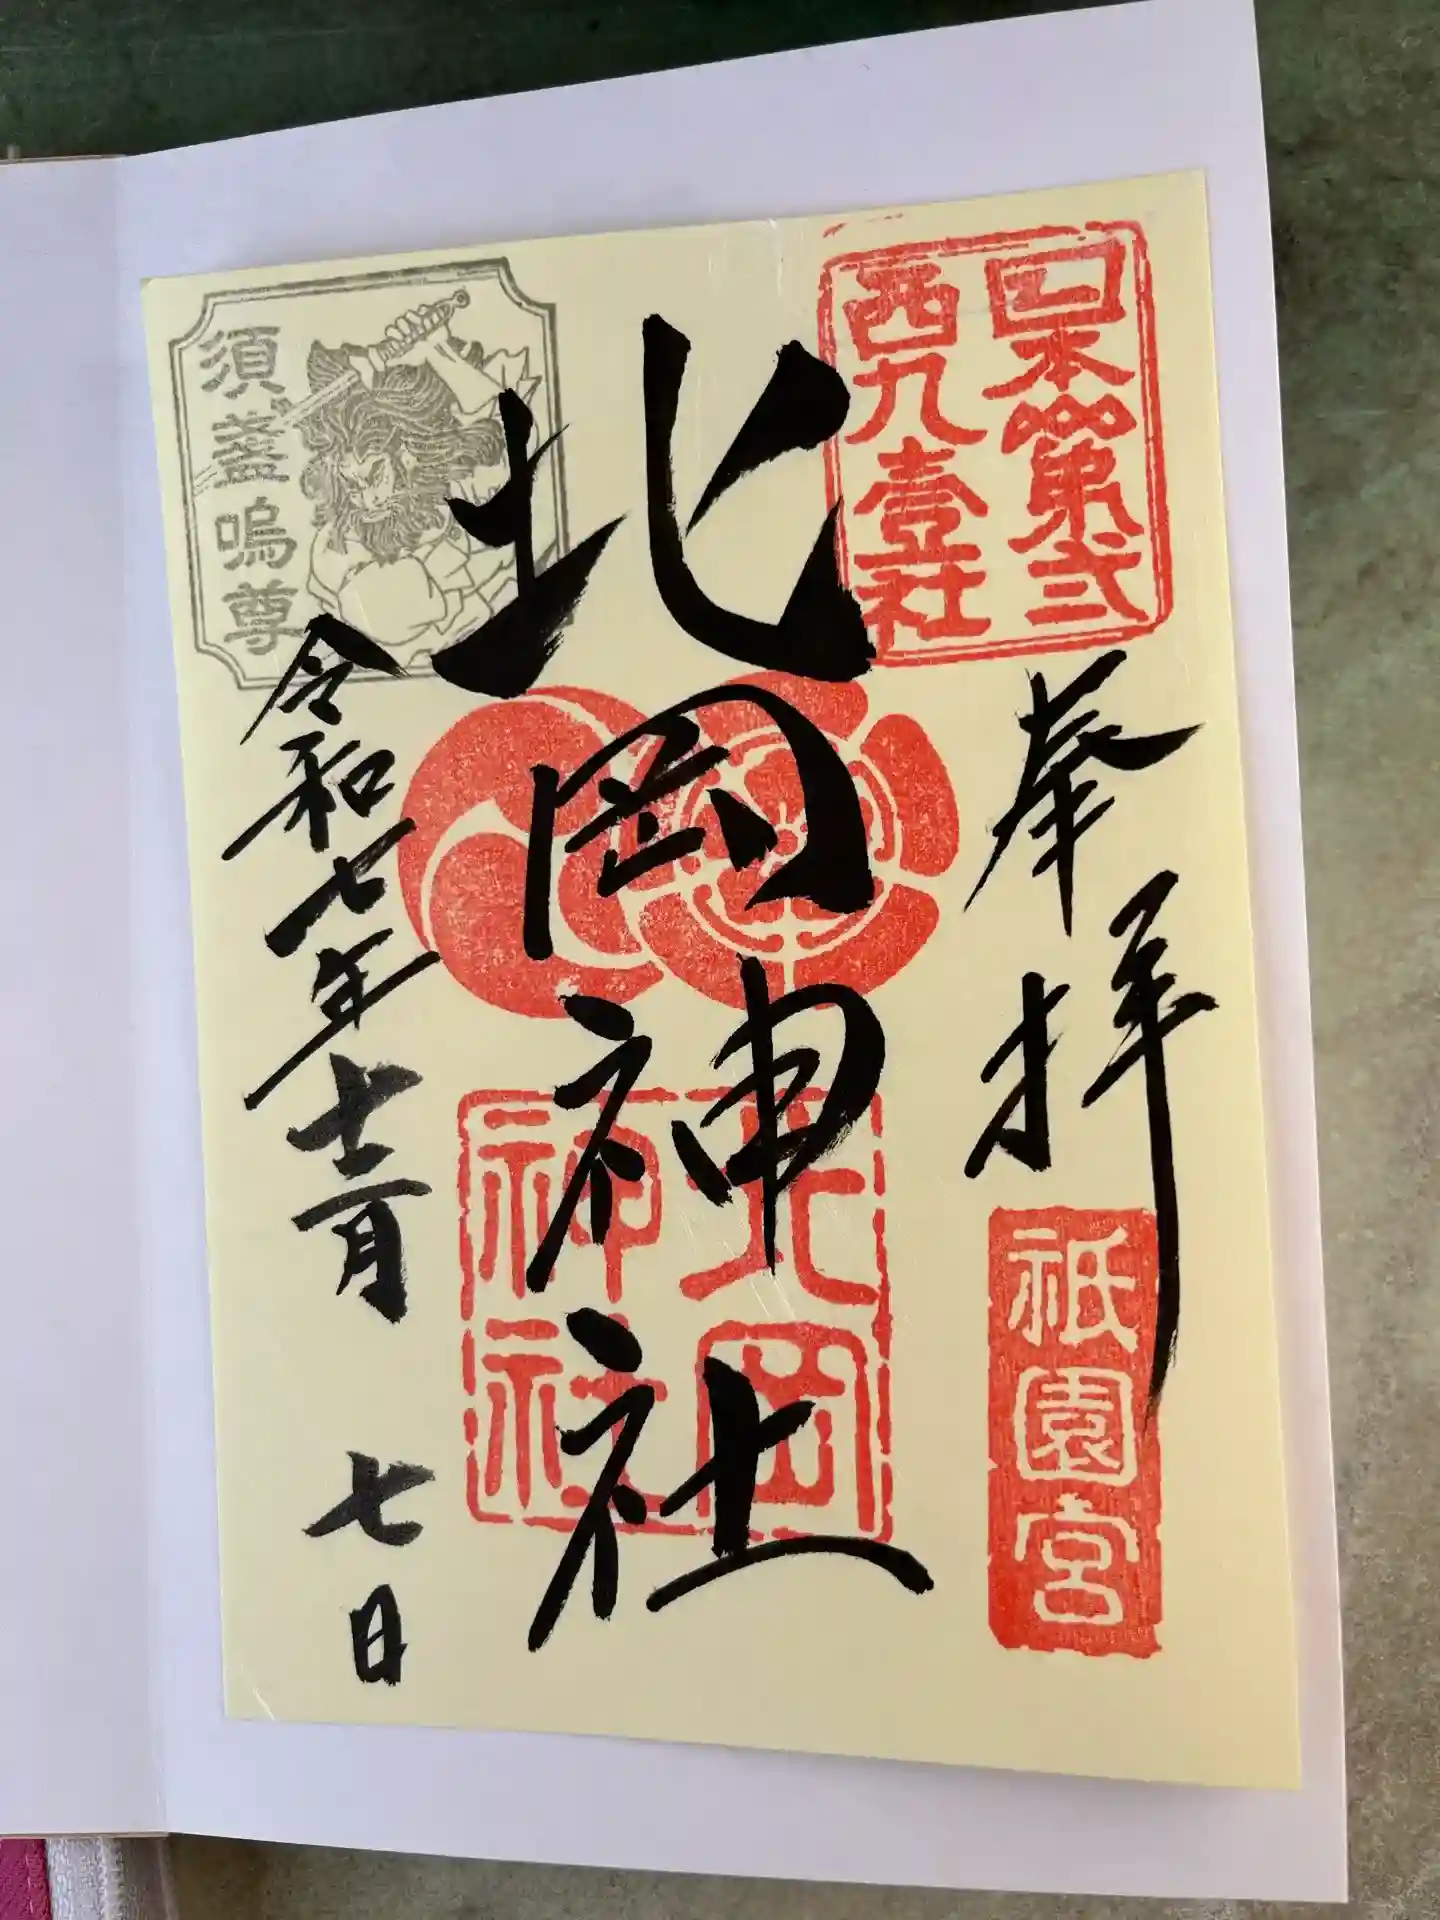 日本第弐
西九壹社
奉拝
祇園宮
北岡神社
北岡
神社
須盞嗚尊
令和七年十二月七日